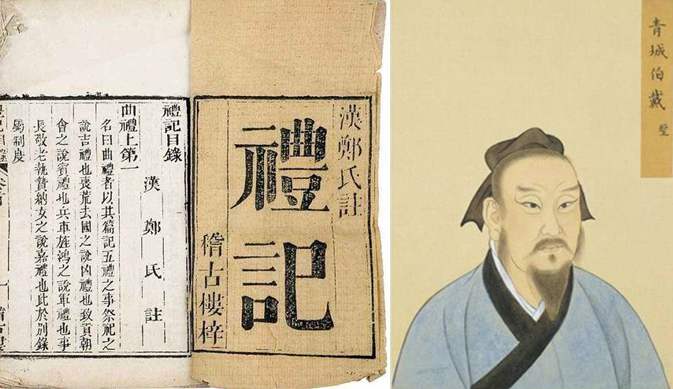 漢鄭氏註
禮記
稽古樓梓
禮記目錄
漢鄭氏註
曲禮上第一
名曰曲禮者以其篇記五禮之事祭祀之
說吉禮也喪荒去國之說凶禮也致貢朝
會之說賓禮也兵車旌鴻之說軍禮也事
長敬老執贄納女之說嘉禮也此於別錄
屬制度
青城伯戴